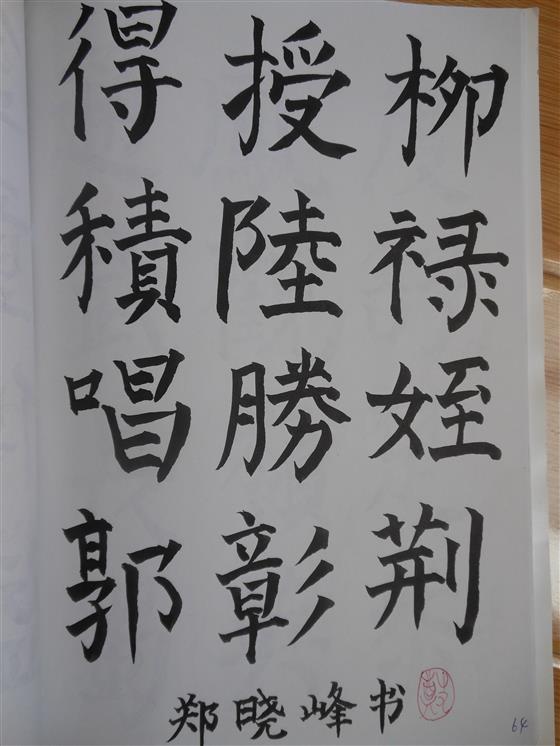 柳禄姪荆
授陸勝彰
得積唱郭
郑晓峰书
64